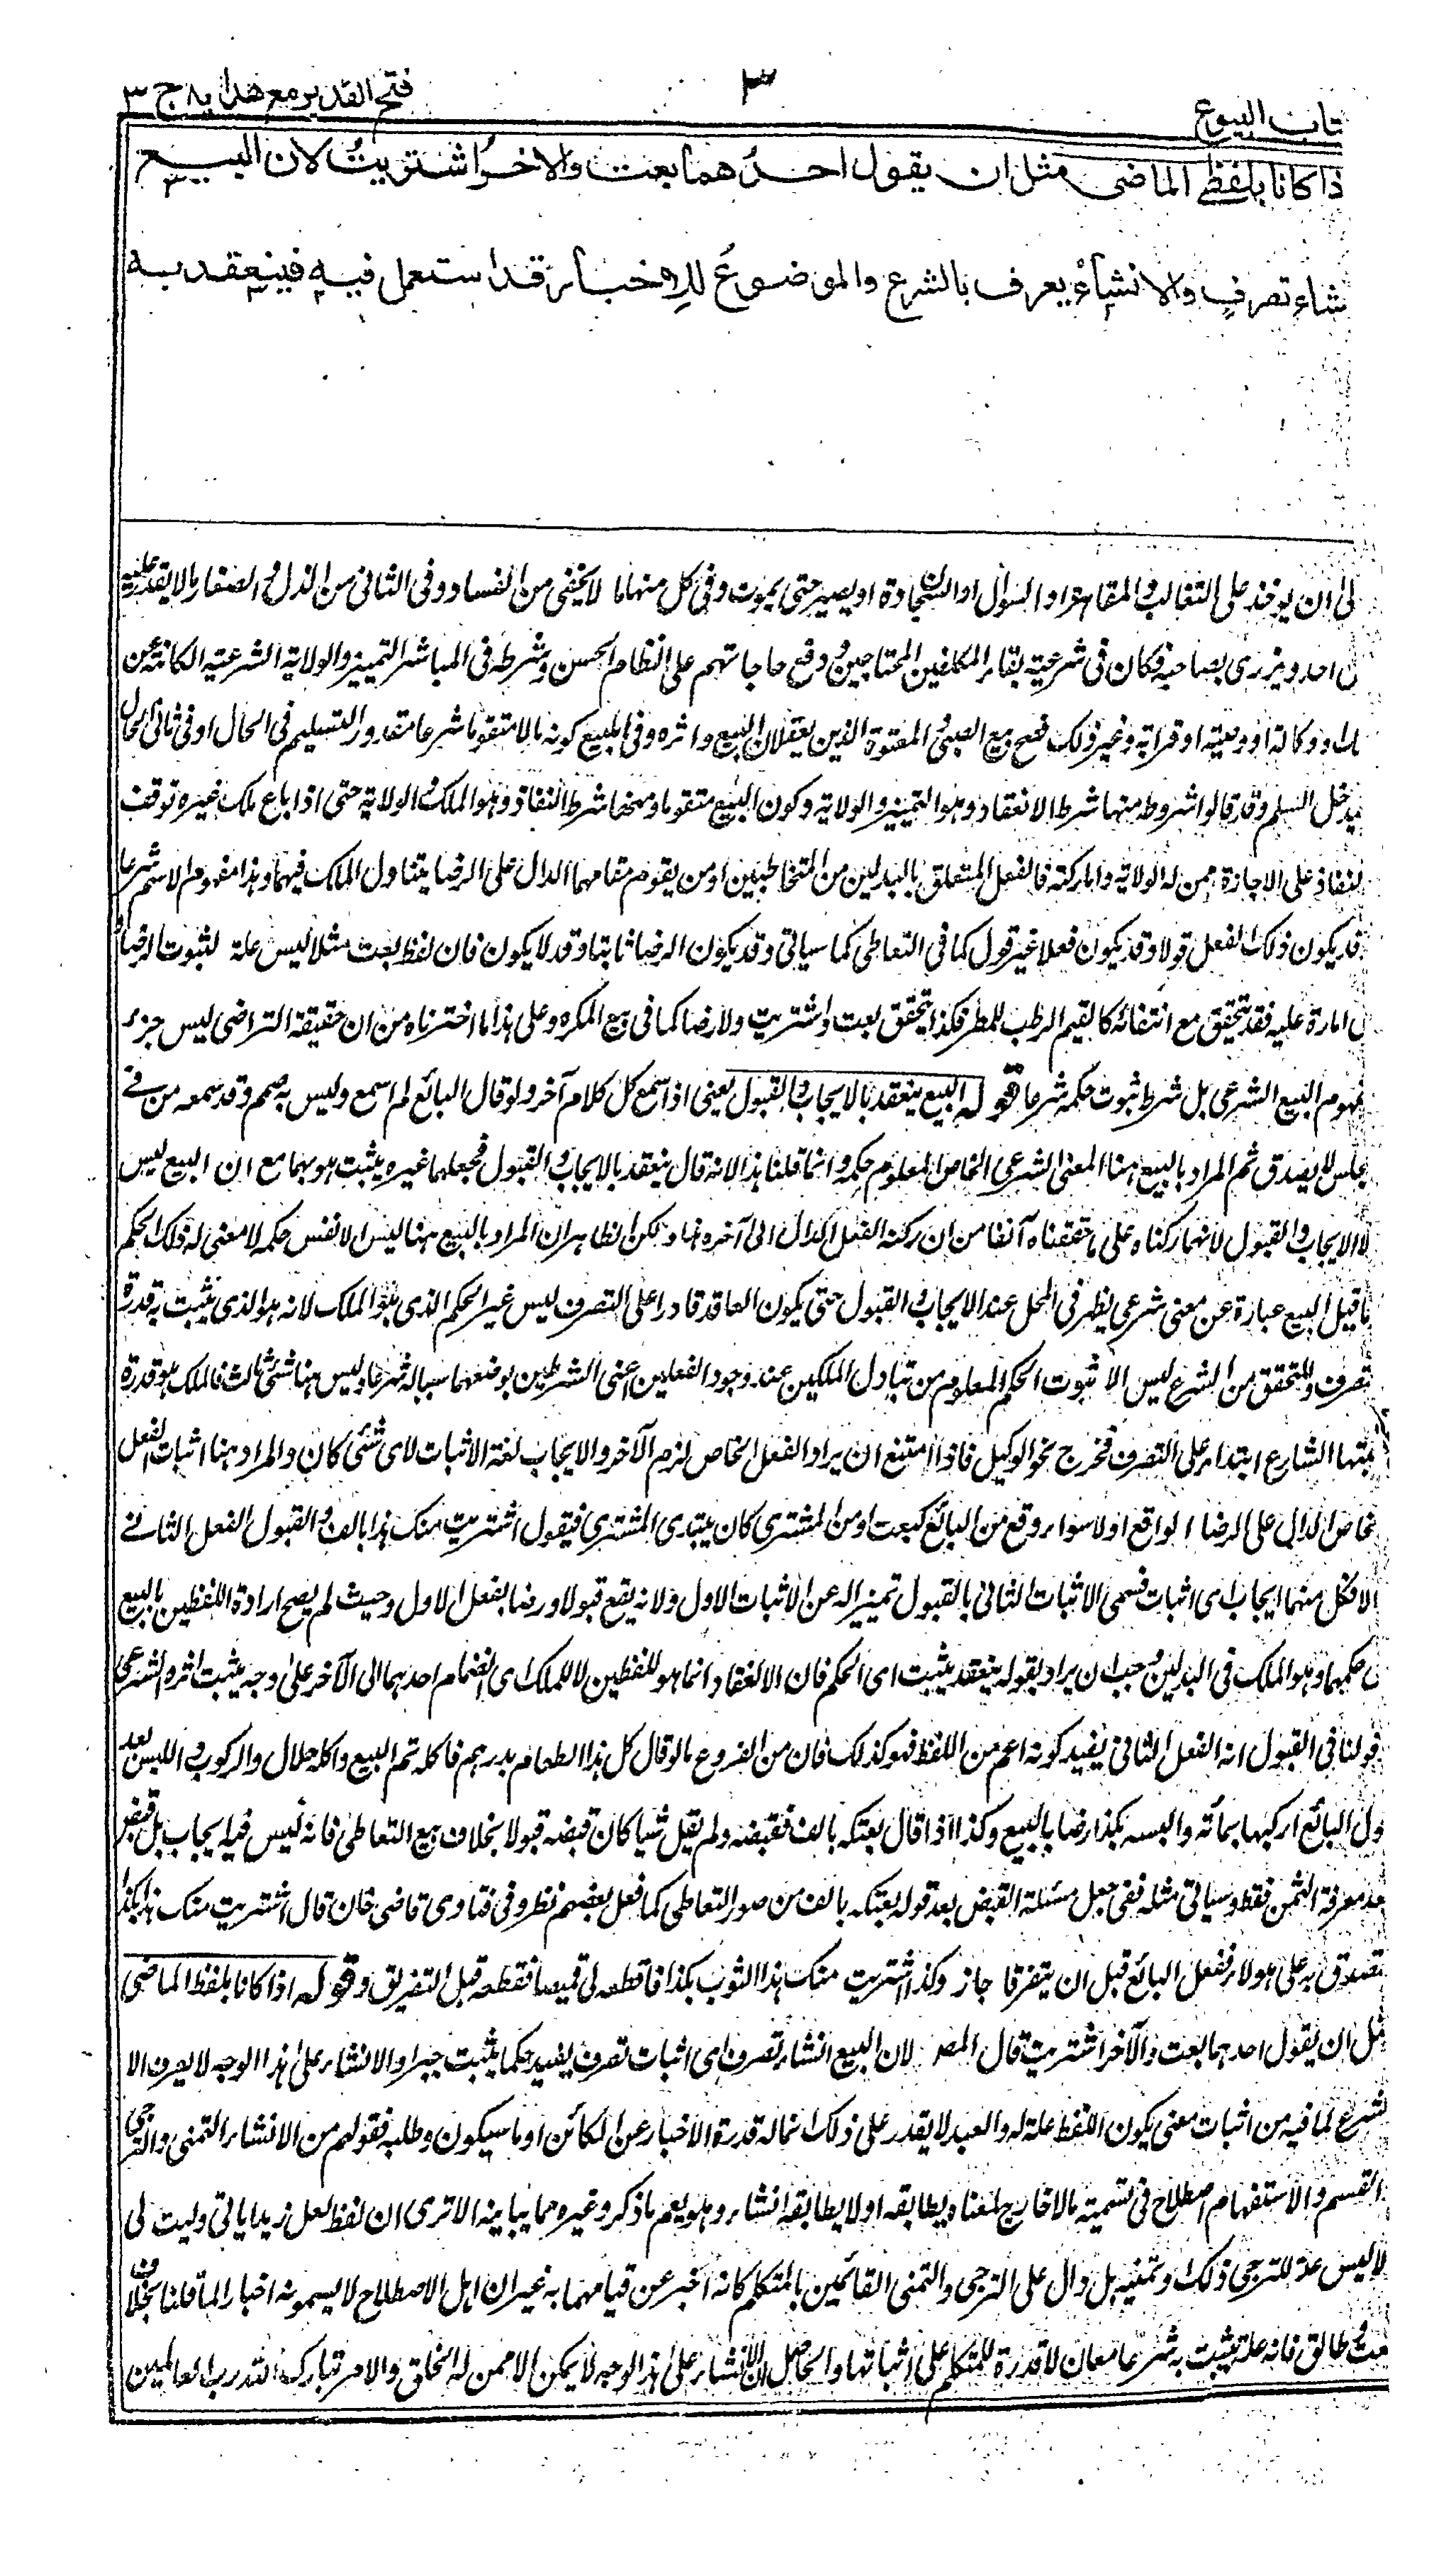 تاب البيوع
٣
فتح القدير مع هدايه ج ٣
ذا كانا بلفظ الماضي مثل ان يقول احدهما بعت والاخر اشتريت لان البيع
شاء تصرف والانشاء يعرف بالشرع والموضوع للاخبار قد استعمل فيه فينعقد به
لى ان يوخذ على التغالب والمقاهرة او السوال او الشحاذة او يصبر حتى يموت وفى كل منها ما لا يخفى من الفساد وفى الثانى من الذل والصغار ما لا يقدر عليه
ل احد ويزرى بصاحبه فكان فى شرعيته بقاء المكلفين المحتاجين ودفع حاجاتهم على النظام الحسن وشرطه فى المباشر التمييز والولاية الشرعية الكائنة عن
ملك او وكالة او وصية او قرابة وغير ذلك فصح بيع الصبى والمعتوه الذين يعقلان البيع واثره وفى المبيع كونه مالا متقوما شرعا مقدور التسليم فى الحال او فى ثانى الحال
يدخل السلم وقد قالوا شروط منها شرط الانعقاد وهو التمييز والولاية وكون المبيع متقوما ومنها شرط النفاذ وهو الملك والولاية حتى اذا باع ملك غيره توقف
لنفاذ على الاجازة ممن له الولاية واما ركنه فالفعل المتعلق بالبدلين من المتخاطبين او من يقوم مقامهما الدال على الرضا بتناول الملك فيهما وهذا مفهوم الاسم شرعا
قد يكون ذلك الفعل قولا وقد يكون فعلا غير قول كما فى التعاطى كما سياتى وقد يكون الرضا ثابتا وقد لا يكون فان لفظ بعت مثلا ليس علة لثبوت الرضا
ل امارة عليه فقد يتحقق مع انتفائه كالغيم الرطب للمطر فكذا يتحقق بعت واشتريت ولا رضا كما فى بيع المكره وعلى هذا ما اخترناه من ان حقيقة التراضى ليس جزء
مفهوم البيع الشرعى بل شرط ثبوت حكمه شرعا قوله البيع ينعقد بالايجاب والقبول يعنى اذا سمع كل كلام آخر ولو قال البائع لم اسمع وليس به صمم وقد سمعه من فى
مجلس لا يصدق ثم المراد بالبيع هنا المعنى الشرعى الخاص المعلوم حكمه وانما قلنا هذا لانه قال ينعقد بالايجاب والقبول فجعلهما غيره يثبت هو بهما مع ان البيع ليس
لا الايجاب والقبول لانهما ركناه على ما حققناه آنفا من ان ركنه الفعل الدال الى آخره هذا ولكن الظاهر ان المراد بالبيع هنا ليس الا نفس حكمه لا معنى له ذلك الحكم
ما قيل البيع عبارة عن معنى شرعى يظهر فى المحل عند الايجاب والقبول حتى يكون العاقد قادرا على التصرف ليس غير الحكم الذى هو الملك لانه هو الذى يثبت به قدرة
تصرف والمتحقق من الشرع ليس الا ثبوت الحكم المعلوم من تبادل الملكين عند وجود الفعلين اعنى الشطرين بوضعهما سببا له شرعا وليس هنا شئ ثالث فالملك هو قدرة
يثبتها الشارع ابتداء على التصرف فخرج نحو الوكيل فاذا امتنع ان يراد الفعل الخاص لزم الآخر والايجاب لغة الاثبات لاى شئ كان والمراد هنا اثبات الفعل
خاص الدال على الرضا الواقع اولا سواء وقع من البائع كبعت او من المشترى كان يبتدى المشترى فيقول اشتريت منك هذا بالف والقبول الفعل الثانى
الا فكل منهما ايجاب اى اثبات فسمى الاثبات الثانى بالقبول تمييزا له عن الاثبات الاول ولانه يقع قبولا ورضا بفعل الاول وحيث لم يصح ارادة اللفظين بالبيع
ل حكمهما وهو الملك فى البدلين وجب ان يراد بقوله ينعقد يثبت اى الحكم فان الانعقاد انما هو للفظين لا للملك اى انضمام احدهما الى الآخر على وجه يثبت اثره الشرعى
قولنا فى القبول انه الفعل الثانى يفيد كونه اعم من اللفظ فهو كذلك فان من الفروع ما لو قال كل هذا الطعام بدرهم فاكله تم البيع واكله حلال والركوب واللبس بعد
ول البائع اركبها بمائة والبسه بكذا رضا بالبيع وكذا اذا قال بعتكه بالف فقبضه ولم يقل شيا كان قبضه قبولا بخلاف بيع التعاطى فانه ليس فيه ايجاب بل قبض
عد معرفة الثمن فقط وسياتى مثله ففى جعل مسئلة القبض بعد قوله بعتكه بالف من صور التعاطى كما فعل بعضهم نظر وفى فتاوى قاضى خان قال اشتريت منك هذا بكذا
تصدق به على هولاء ففعل البائع قبل ان يتفرقا جاز وكذا اشتريت منك هذا الثوب بكذا فاقطعه لى قميصا فقطعه قبل التفريق وقوله اذا كانا بلفظ الماضى
مثل ان يقول احدهما بعت والآخر اشتريت قال المص لان البيع انشاء تصرف اى اثبات تصرف يفيد حكما يثبت جبرا والانشاء على هذا الوجه لا يعرف الا
لشرع لما فيه من اثبات معنى يكون اللفظ علة له والعبد لا يقدر على ذلك انما له قدرة الاخبار عن الكائن او ما سيكون وطلبه فقولهم من الانشاء التمنى والترجى
القسم والاستفهام اصطلاح فى تسميته ما لا خارج لمعناه يطابقه او لا يطابقه انشاء وهو يعم ما ذكر وغيره مما يباينه الا ترى ان لفظ لعل زيدا ياتى وليت لى
لا ليس علة للترجى ذلك وتمنيه بل دال على الترجى والتمنى القائمين بالمتكلم كانه اخبر عن قيامهما به غير ان اهل الاصطلاح لا يسمونه اخبارا لما قلنا بخلاف
بعت وطالق فانه علة يثبت به شرعا معان لا قدرة للمتكلم على اثباتها والحاصل ان الانشاء على هذا الوجه لا يمكن الا ممن له الخلق والامر تبارك الله رب العالمين